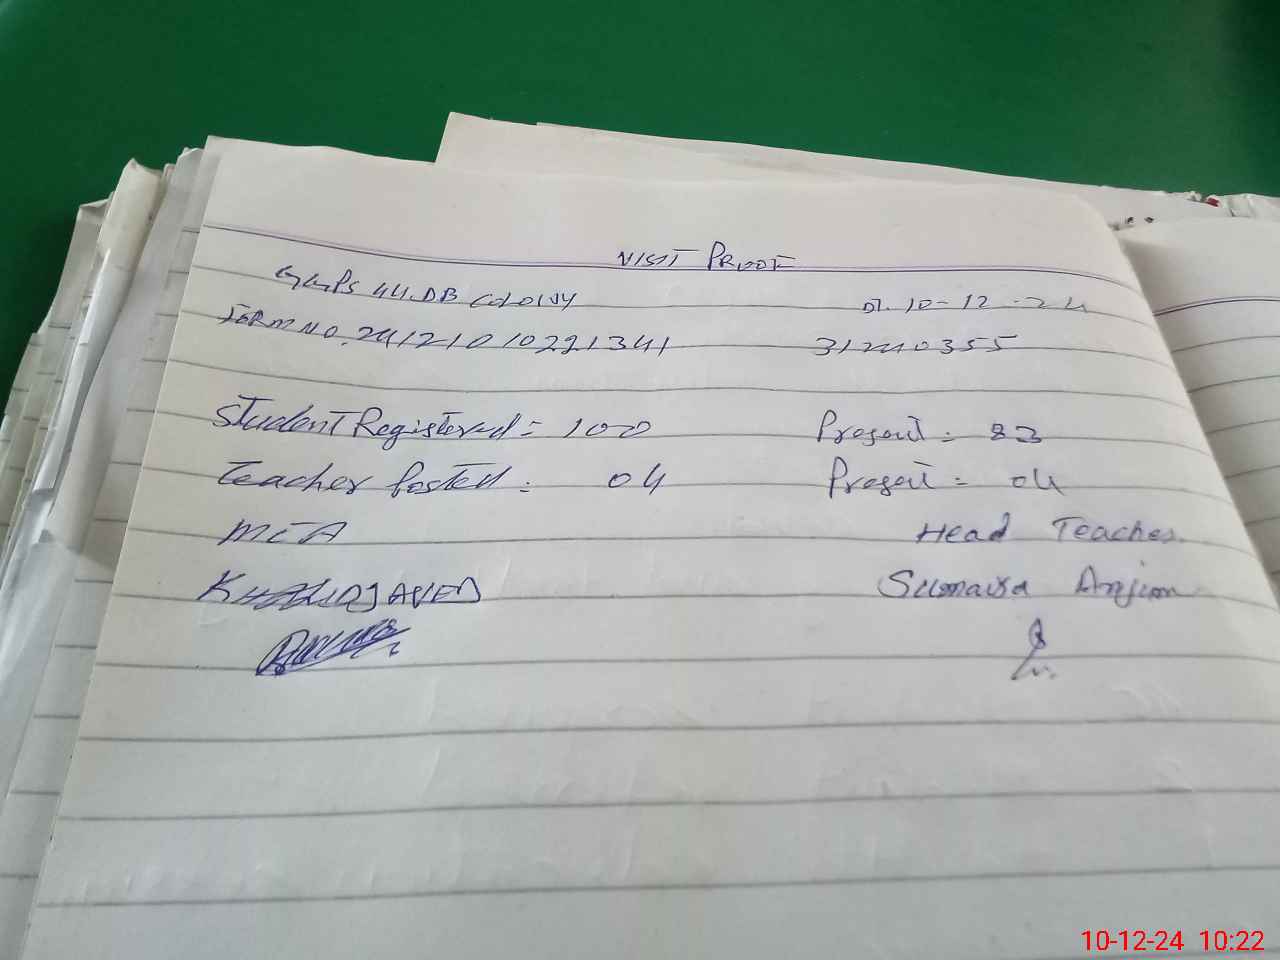 VISIT PROOF
GGPS 44.DB COLONY Dt. 10-12-24
FORM NO. 24121010221341 31240355
Student Registered = 100 Present = 83
Teacher Posted = 04 Present = 04
MEA Head Teacher
JAVED Sumaira Anjum
10-12-24 10:22